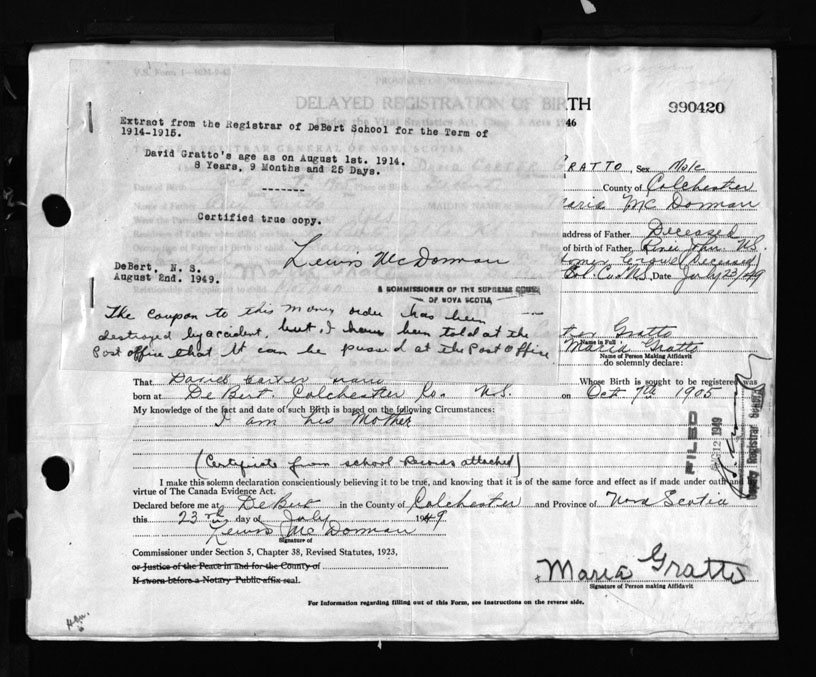 DELAYED REGISTRATION OF BIRTH
990420
Extract from the Registrar of DeBert School for the Term of
1914-1915.
David Gratto's age as on August 1st. 1914.
8 Years, 9 Months and 25 Days.
-------
Certified true copy.
Lewis McDorman
DeBert, N. S.
August 2nd. 1949.
A COMMISSIONER OF THE SUPREME COURT
OF NOVA SCOTIA
The coupon to this money order has been
destroyed by accident, but I have been told at the
Post office that it can be passed at the Post Office
46
GRATTO, Sex Male
County of Colchester
Maria McDorman
address of Father Deceased
of birth of Father River John. N.S.
(Deceased)
Col. Co. N.S., Date July 23/49
Gratto
Name in Full
Maria Gratto
Name of Person Making Affidavit
do solemnly declare:
That David Carter Whose Birth is sought to be registered was
born at DeBert Colchester Co. N.S. on Oct 7th 1905
My knowledge of the fact and date of such Birth is based on the following Circumstances:
I am his Mother
(Certificate from school Records attached)
FILED
1949
Deputy Registrar General
I make this solemn declaration conscientiously believing it to be true, and knowing that it is of the same force and effect as if made under oath and
virtue of The Canada Evidence Act.
Declared before me at DeBert in the County of Colchester and Province of Nova Scotia
this 23rd day of July 1949
Lewis McDorman
Signature of
Commissioner under Section 5, Chapter 38, Revised Statutes, 1923,
or Justice of the Peace in and for the County of
If sworn before a Notary Public affix seal.
Maria Gratto
Signature of Person making Affidavit
For Information regarding filling out of this Form, see Instructions on the reverse side.